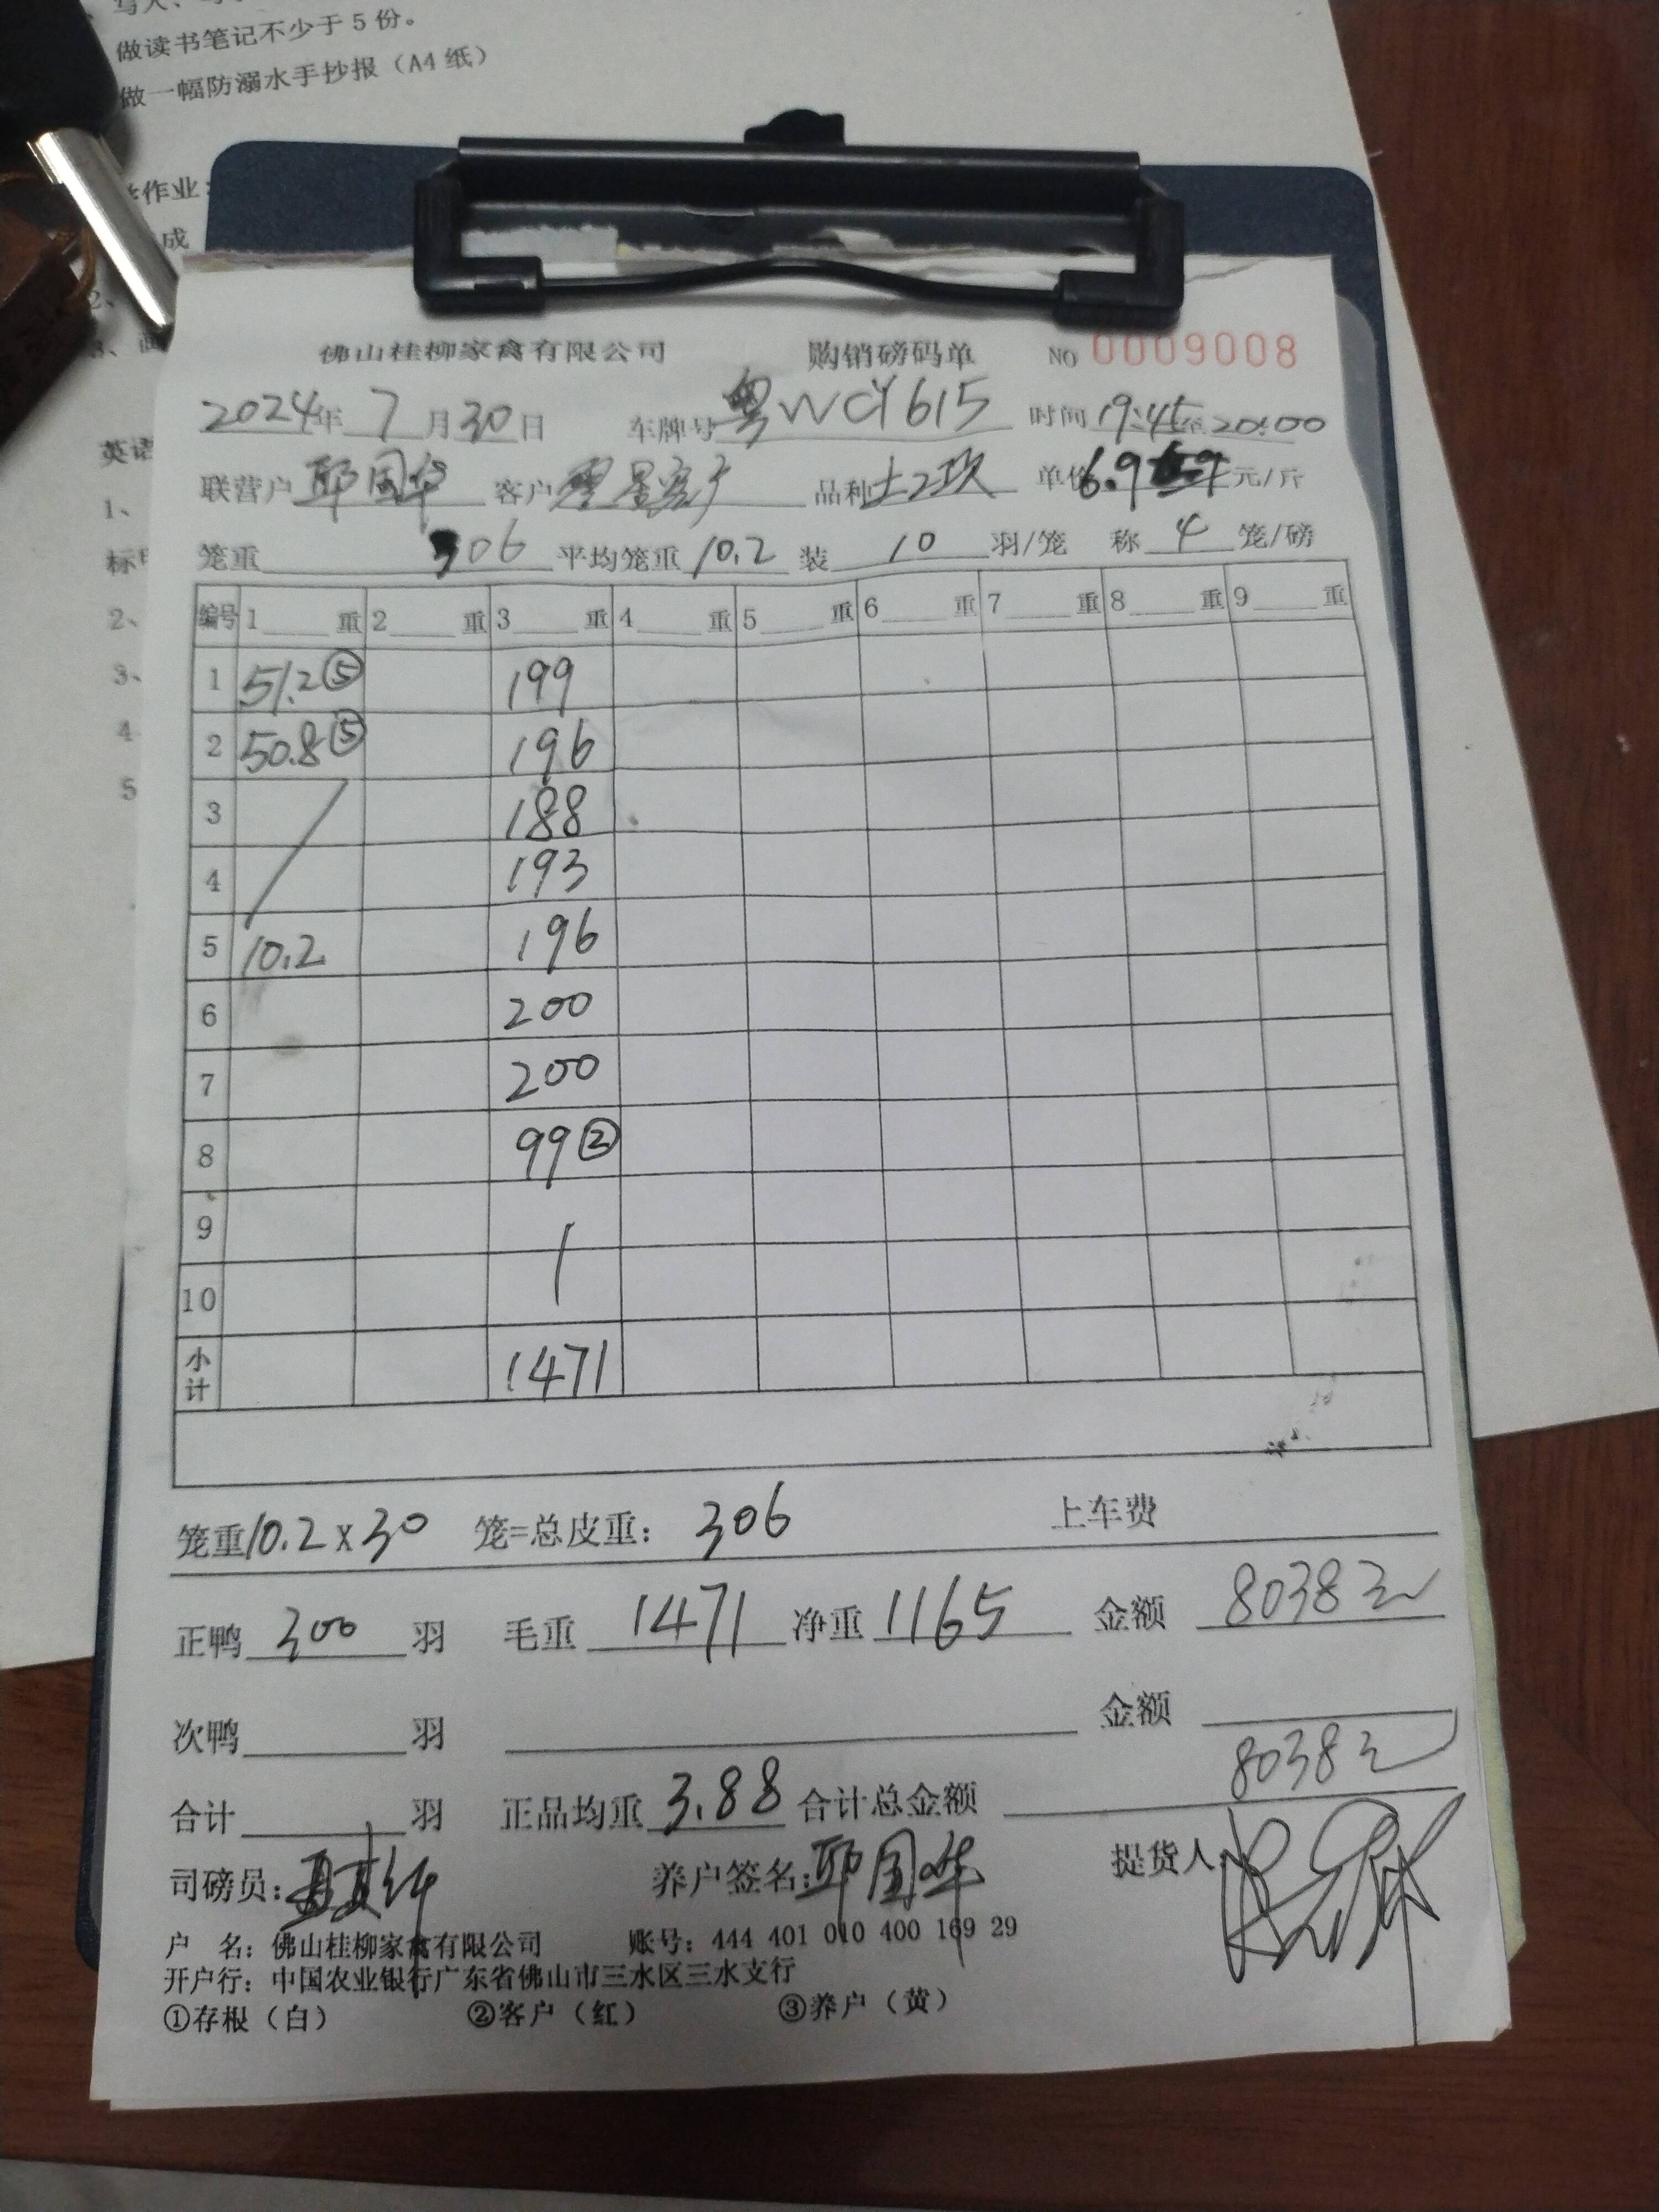 做读书笔记不少于 5 份。
做一幅防溺水手抄报（A4 纸）
作业：
成
2、
3、画
英语
1、
标
2、
3、
4
5
佛山桂柳家禽有限公司 购销磅码单 NO 0009008
2024年 7 月 30 日 车牌号 粤WCY615 时间 19:45至20:00
联营户 邱国华 客户 品种 土2 单价 6.9 元/斤
笼重 306 平均笼重 10.2 装 10 羽/笼 称 4 笼/磅
编号 1 重 2 重 3 重 4 重 5 重 6 重 7 重 8 重 9 重
1 51.2⑤ 199
2 50.8⑤ 196
3 188
4 193
5 10.2 196
6 200
7 200
8 99②
9
10
小计 1471
笼重10.2x30 笼=总皮重： 306 上车费
正鸭 300 羽 毛重 1471 净重 1165 金额 8038元
次鸭 羽 金额
合计 羽 正品均重 3.88 合计总金额 8038元
司磅员： 养户签名：邱国华 提货人
户 名：佛山桂柳家禽有限公司 账号：444 401 010 400 169 29
开户行：中国农业银行广东省佛山市三水区三水支行
①存根（白） ②客户（红） ③养户（黄）